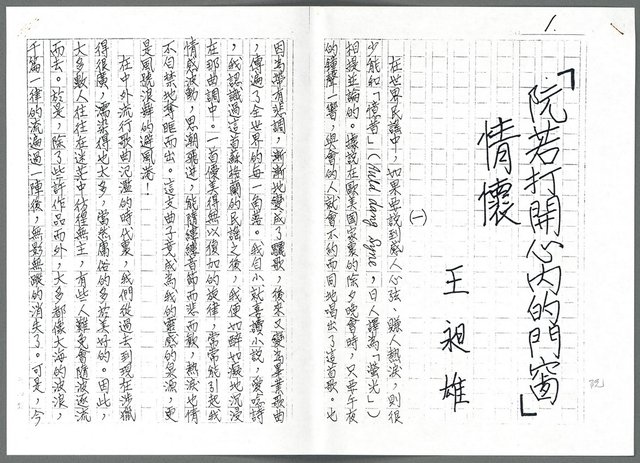 1.
「阮若打開心內的門窗」
情懷
王昶雄
(一)
在世界民謠中,如果要說到感人心弦、賺人熱淚,則很
少能和「憶昔」(Auld Lang Syne,日人譯為「螢光」)
相提並論的。據說在歐美國家裏的除夕晚會時,只要午夜
的鐘聲一響,與會的人就會不約而同地唱出了這首歌。也
因為帶有悲調,漸漸地變成了驪歌,後來又變為畢業歌曲
,傳遍了全世界的每一角落。我自小就喜讀小說,愛唸詩
,我認識過這首蘇格蘭的民謠之後,我便如醉如痴地沉浸
在那曲調中。一首優美得無以復加的旋律,常常能引起我
情感波動,思潮飛逝,能隨縷縷音節而悲而歡,熱淚也情
不自禁地奪眶而出。這支曲子竟成為我的靈感的泉源,更
是風號浪舞的避風港!
在中外流行歌曲氾濫的時代裏,我們從過去到現在涉獵
得很廣,濡染得也太多,當然庸俗的多於美好的。因此,
大多數人往往在迷茫中彷徨無主,有些人難免會隨波逐流
而去。於是,除了些許作品而外,大多都像大海的波浪,
千篇一律的流過一陣後,無影無蹤的消失了。可是,今